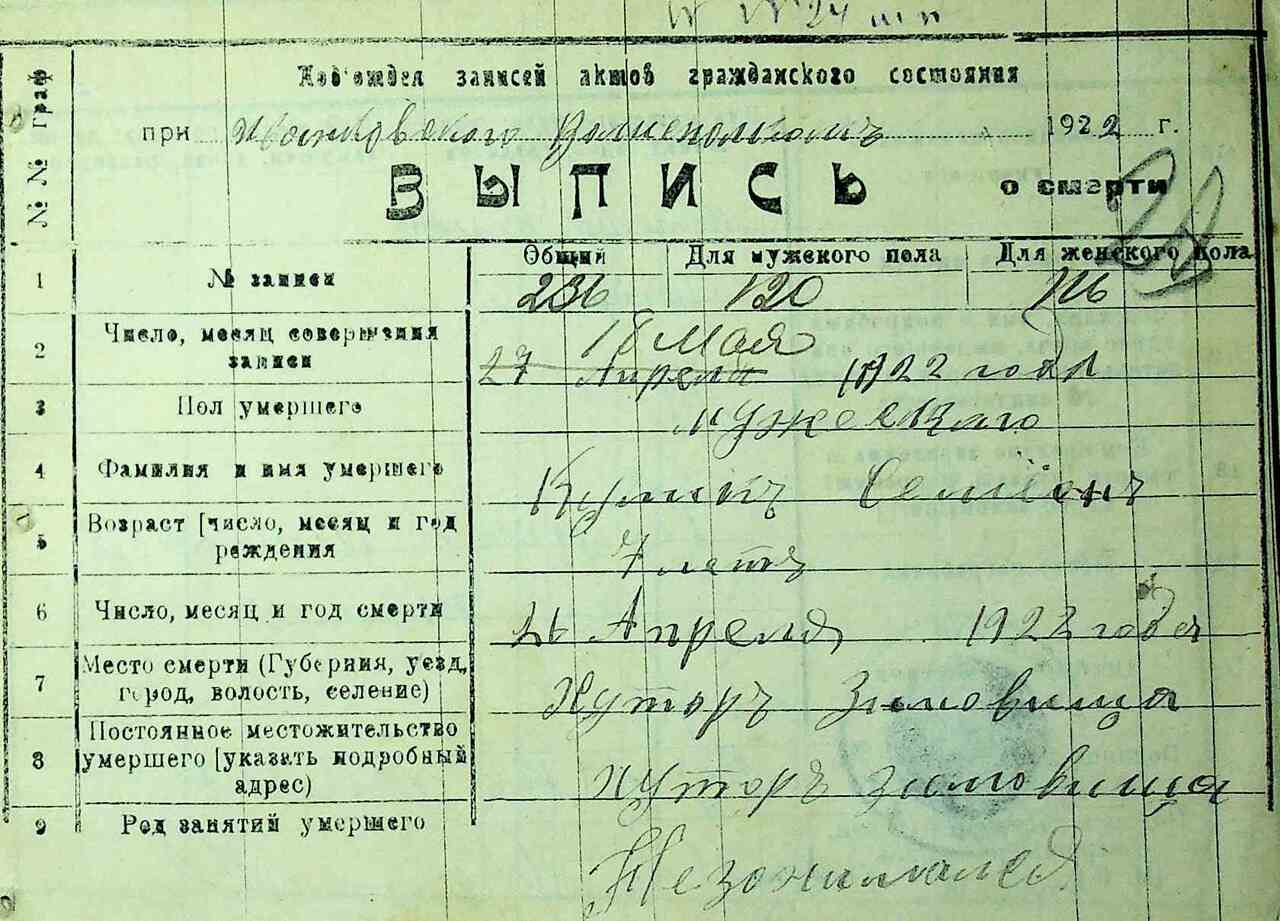 Под'отдел записей актов гражданского состояния
при 1922 г.
ВЫПИСЬ о смерти
№ № граф
Общий Для мужского пола Для женского пола
1 № записи 236 120 116
2 Число, месяц совершения записи 18 Мая
27 Апреля 1922 года
3 Пол умершего мужескаго
4 Фамилия и имя умершего Семіонъ
5 Возраст [число, месяц и год
раждения 7 летъ
6 Число, месяц и год смерти 26 Апреля 1922 года
7 Место смерти (Губерния, уезд,
город, волость, селение) Хуторъ Зимовища
8 Постоянное местожительство
умершего [указать подробный
адрес) хуторъ зимовища
9 Род занятий умершего
Незанимался